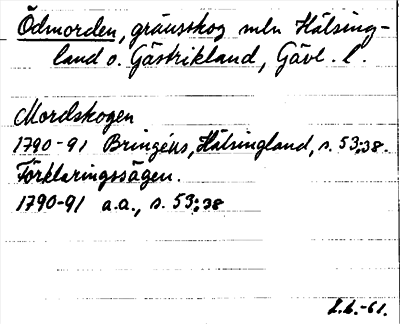 Ödmorden, gränsskog mln Hälsing-
land o. Gästrikland, Gävl. l.
Mordskogen
1790-91 Bringéus, Hälsingland, s. 53:38.
Förklaringssägen.
1790-91 a.a., s. 53:38
L.L.-61.